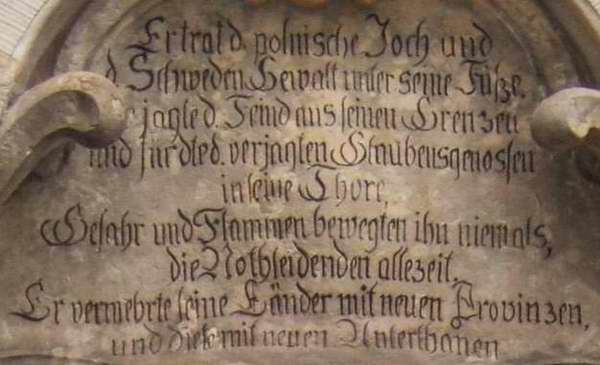 Er trat d. polnische Joch und
d. Schweden Gewalt unter seine Füße.
jagte d. Feind aus seinen Grenzen
und führte d. verjagten Glaubensgenossen
in seine Thore,
Gefahr und Flammen bewegten ihn niemals,
die Nothleidenden allezeit.
Er vermehrte seine Länder mit neuen Provinzen,
und diese mit neuen Unterthanen